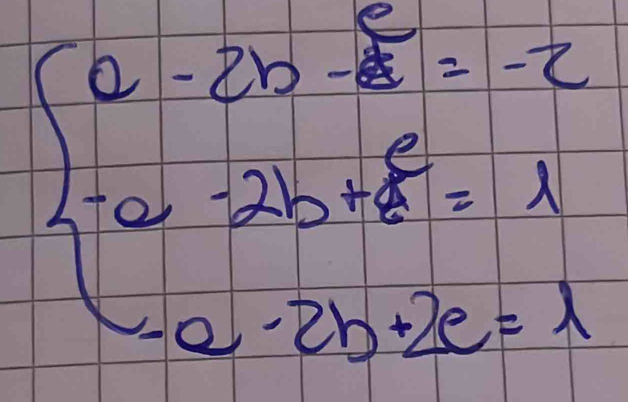 a - 2b - e = -2
-a - 2b + e = 1
-a - 2b + 2e = 1